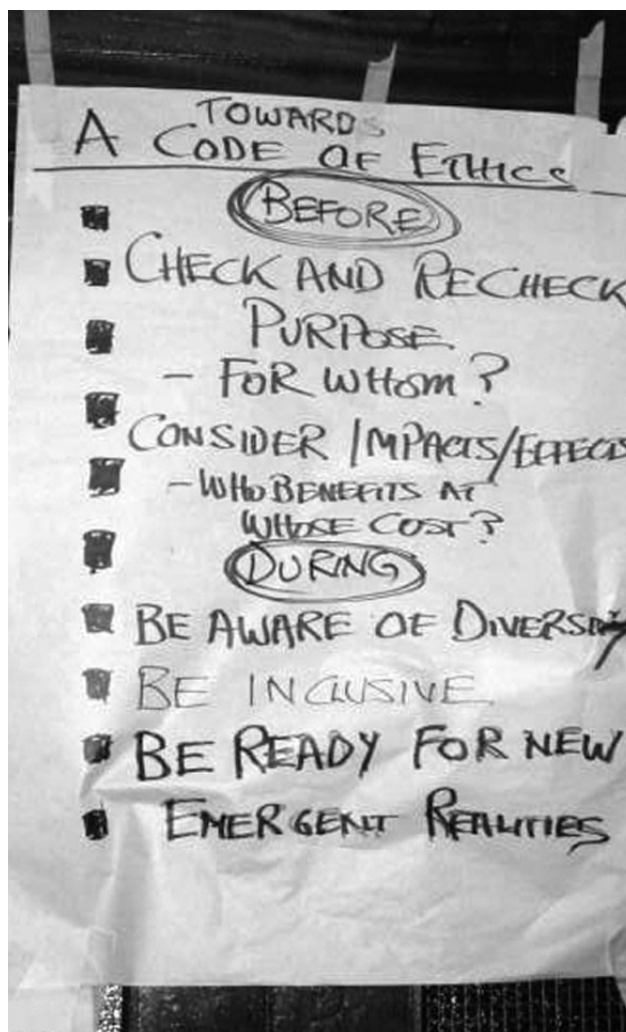 TOWARDS
A CODE OF ETHICS
BEFORE
CHECK AND RECHECK
PURPOSE
- FOR WHOM?
CONSIDER IMPACTS/EFFECTS
- WHO BENEFITS AT
WHOSE COST?
DURING
BE AWARE OF DIVERSITY
BE INCLUSIVE
BE READY FOR NEW
EMERGENT REALITIES